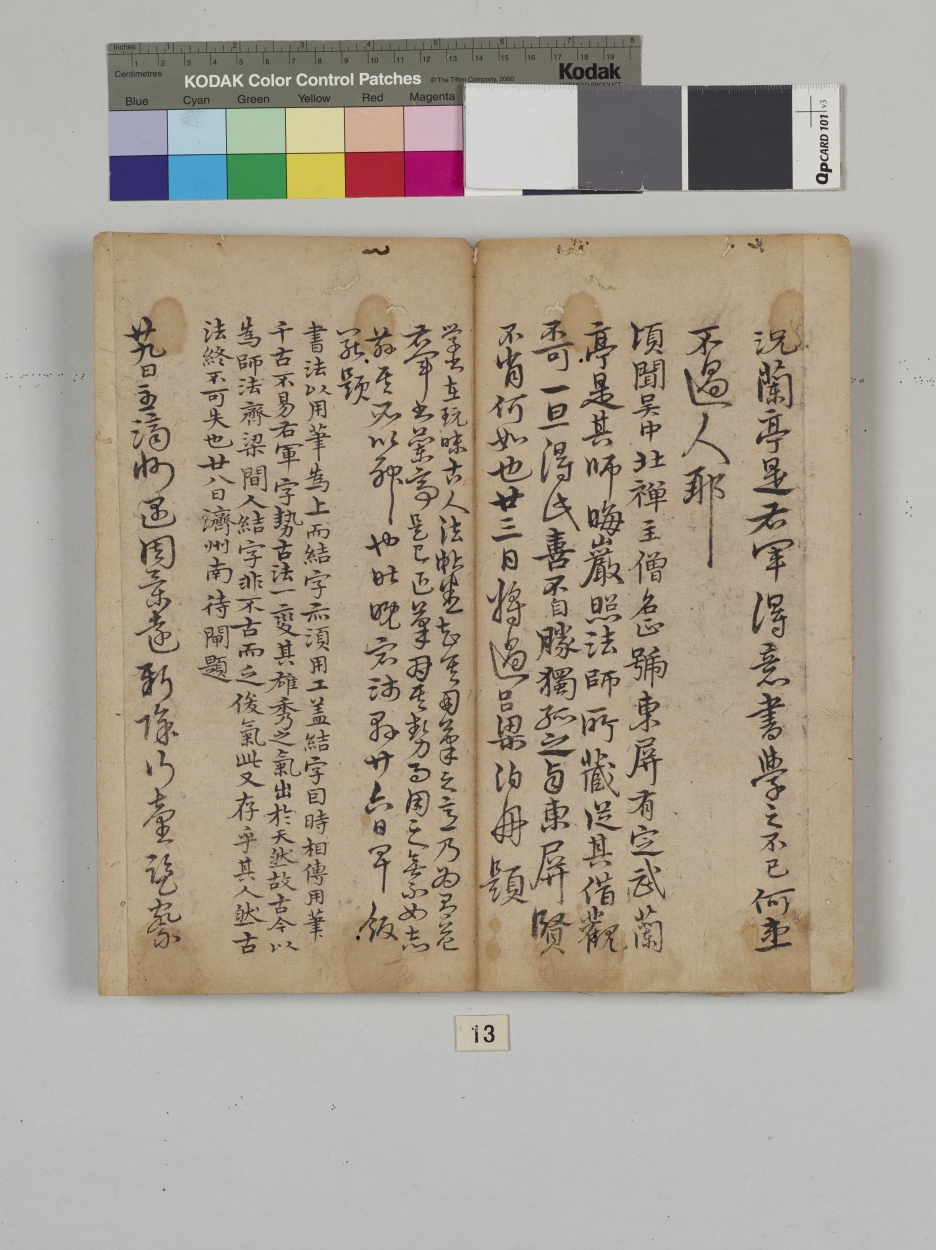 Inches 1 2 3 4 5 6 7 8
Centimetres 1 2 3 4 5 6 7 8 9 10 11 12 13 14 15 16 17 18 19
KODAK Color Control Patches © The Tiffen Company, 2000 Kodak
LICENSED PRODUCT
Blue Cyan Green Yellow Red Magenta
QPCARD 101 v3
况蘭亭是右軍得意書學之不已何患
不過人耶
頃聞吳中北禪主僧名正號東屏有定武蘭
亭是其師晦巖照法師所藏從其借觀
不可一旦得此喜不自勝獨孤之與東屏賢
不肖何如也廿三日將過呂梁泊舟題
學書在玩味古人法帖悉知其用筆之意乃為有益
右軍書蘭亭是已退筆因其勢而用之無不如志
茲其所以神也昨晚宿沛縣廿六日早飯
罷題
書法以用筆為上而結字亦須用工盖結字因時相傳用筆
千古不易右軍字勢古法一變其雄秀之氣出於天然故古今以
為師法齊梁間人結字非不古而乏俊氣此又存乎其人然古
法終不可失也廿八日濟州南待閘題
廿九日至濟州遇周景遠新除行臺監察
13